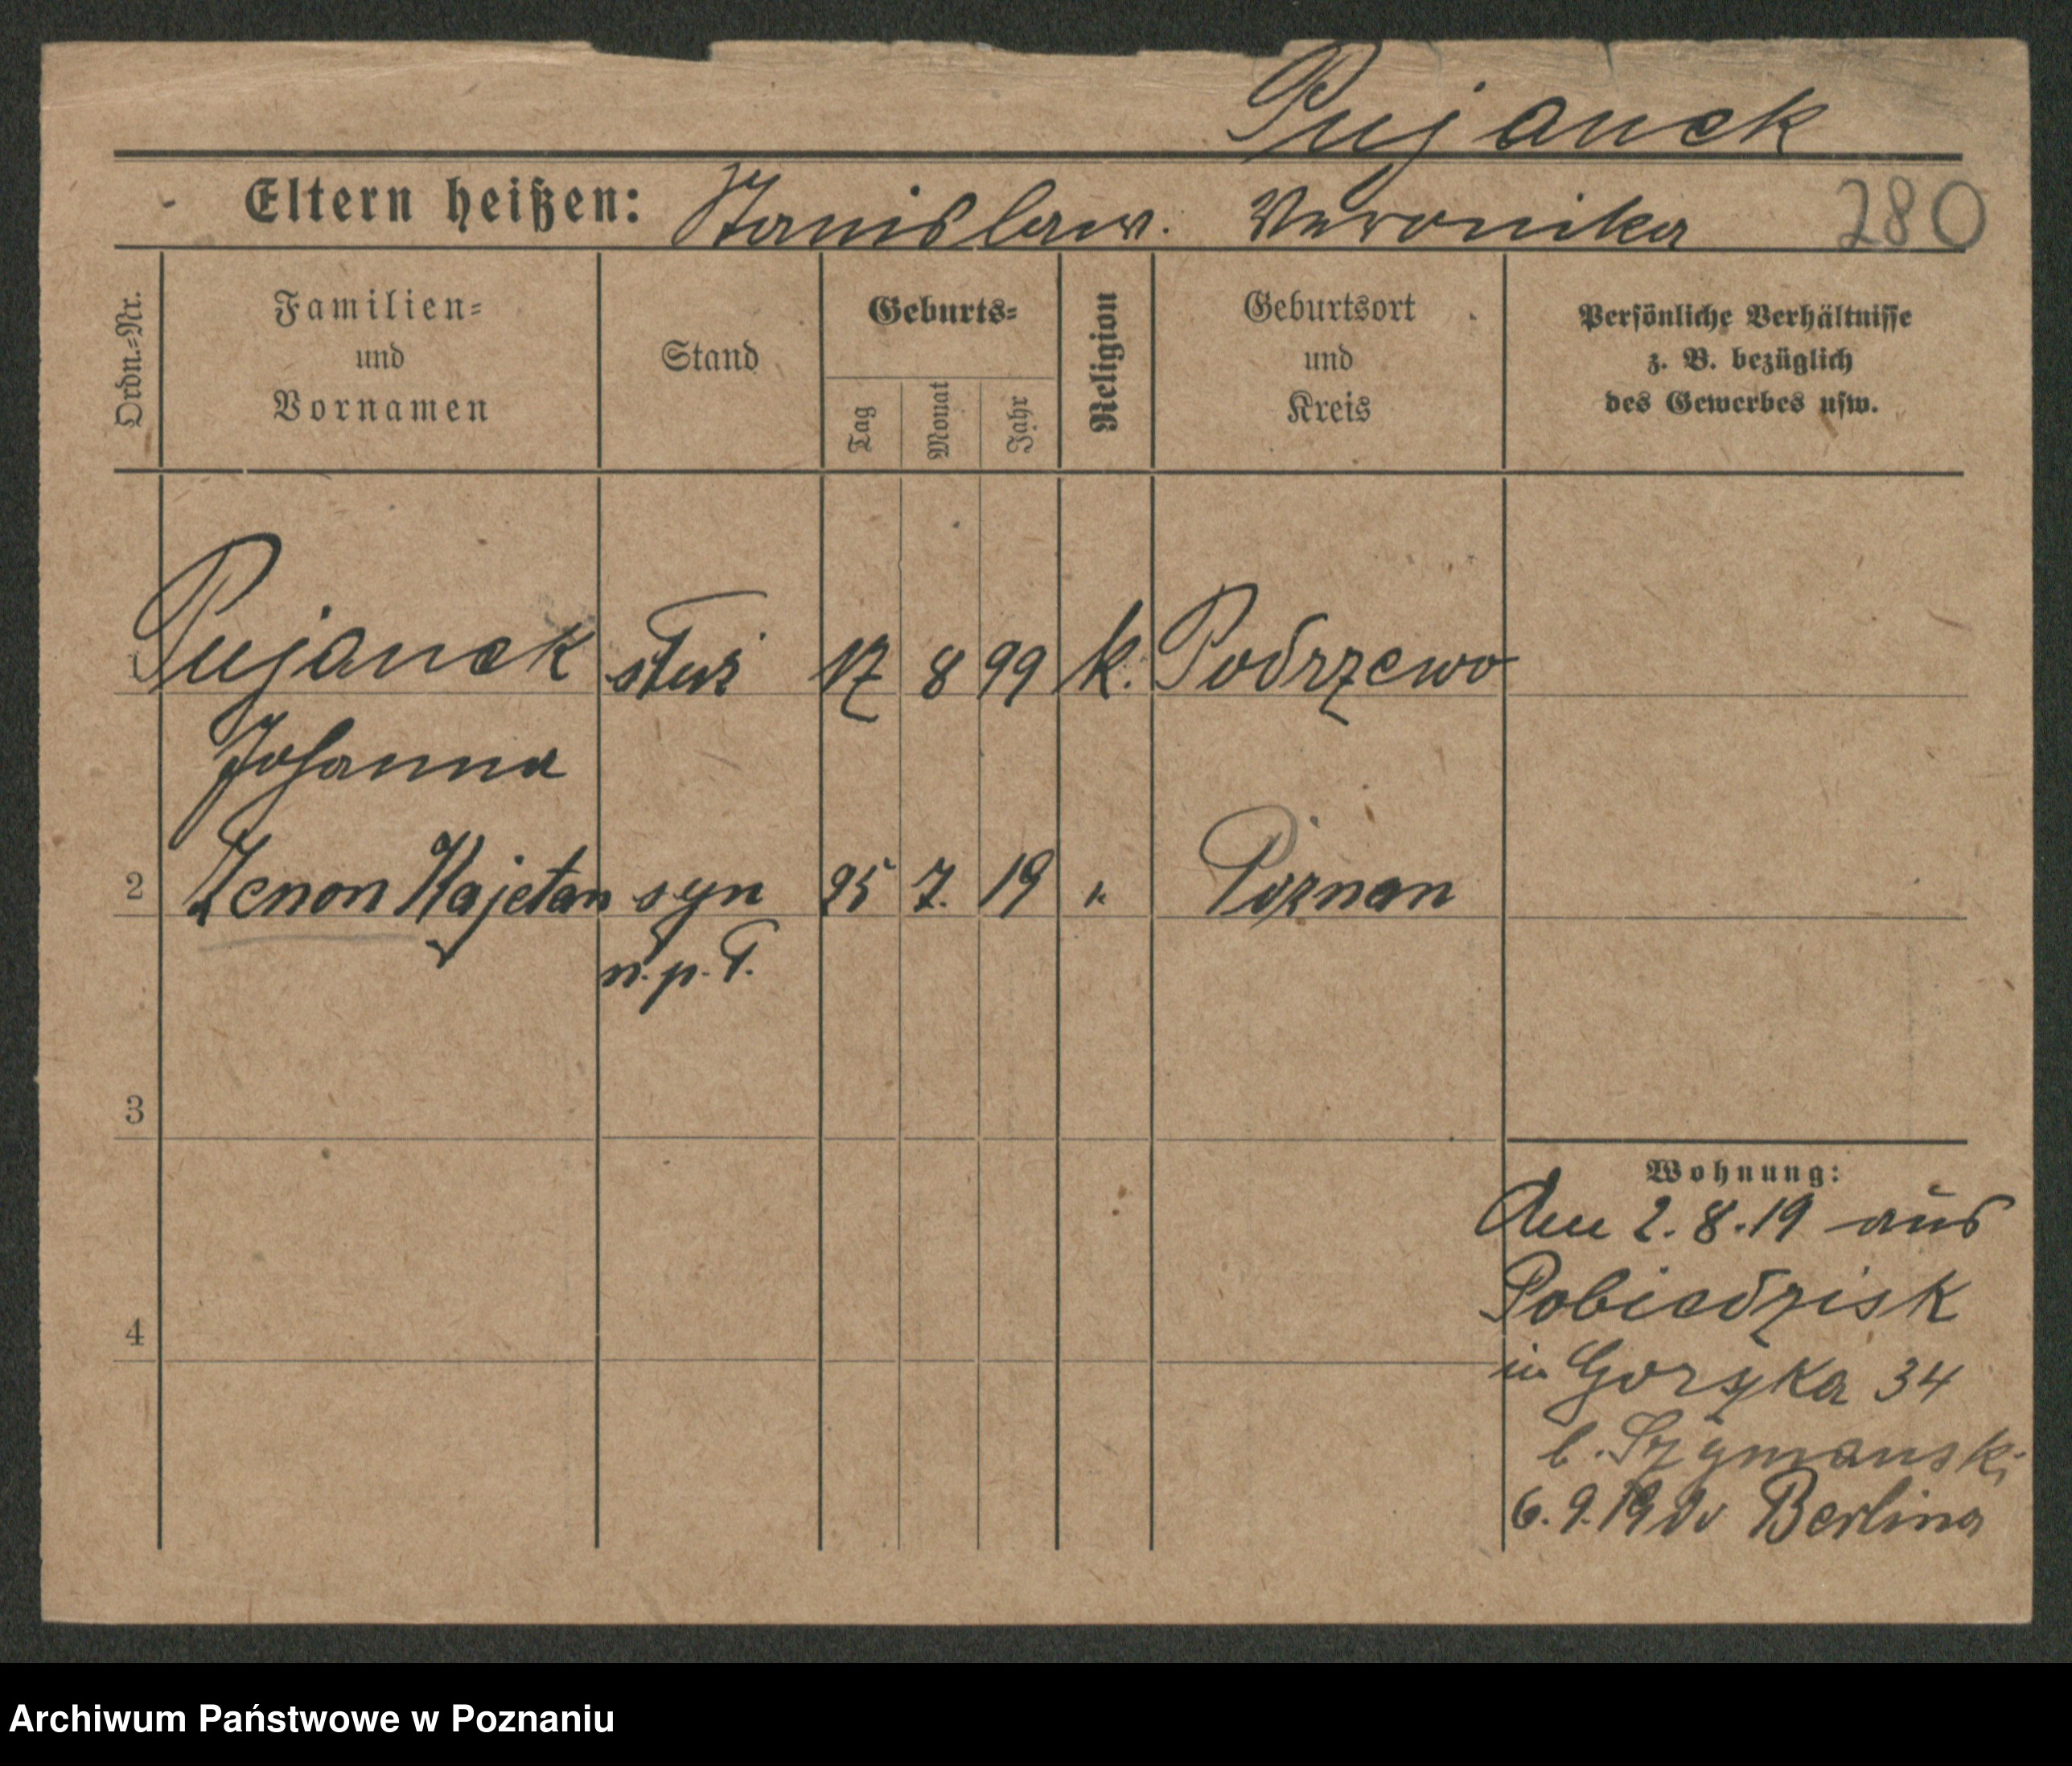 Pujanek
Eltern heißen: Stanislaw. Veronika 280
Ordn.=Nr.
Familien=
und
Vornamen
Stand
Geburts=
Tag
Monat
Jahr
Religion
Geburtsort
und
Kreis
Persönliche Verhältnisse
z. B. bezüglich
des Gewerbes usw.
Pujanek 17 8 99 k. Podrzewo
Johanna
2 Zenon Kajetan syn 25 7. 19 k Poznan
n.p.T.
3
4
Wohnung:
2.8.19 aus
Pobiedzisk
in Gorszka 34
b. Szymanski
6.9.19 Berlina
Archiwum Państwowe w Poznaniu